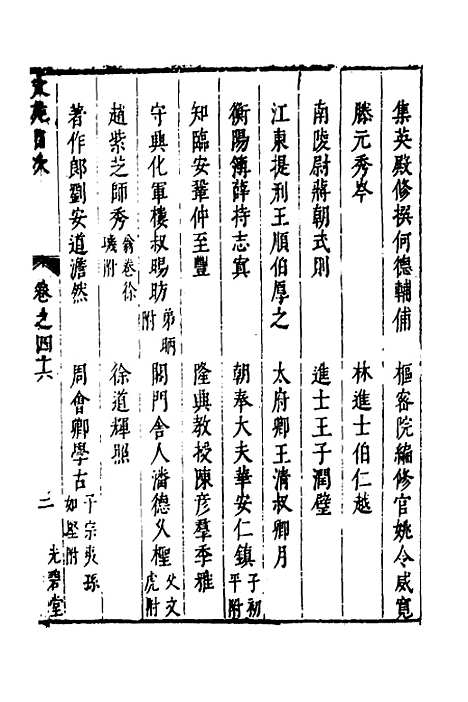 集英殿修撰何德輔俌　樞密院編修官姚令威寬
滕元秀岑　林進士伯仁越
南陵尉蔣朝式則　進士王子潤璧
江東提刑王順伯厚之　太府卿王清叔卿月
衡陽簿薛持志寘　朝奉大夫華安仁鎮子初平附
知臨安鞏仲至豐　隆興教授陳彥羣季雅
守興化軍樓叔暘昉弟昞附　閤門舍人潘德久檉父文虎附
趙紫芝師秀翁卷徐璣附　徐道輝照
著作郎劉安道澹然　周會卿學古子宗夷孫如堅附
卷之四十六
三
光碧堂